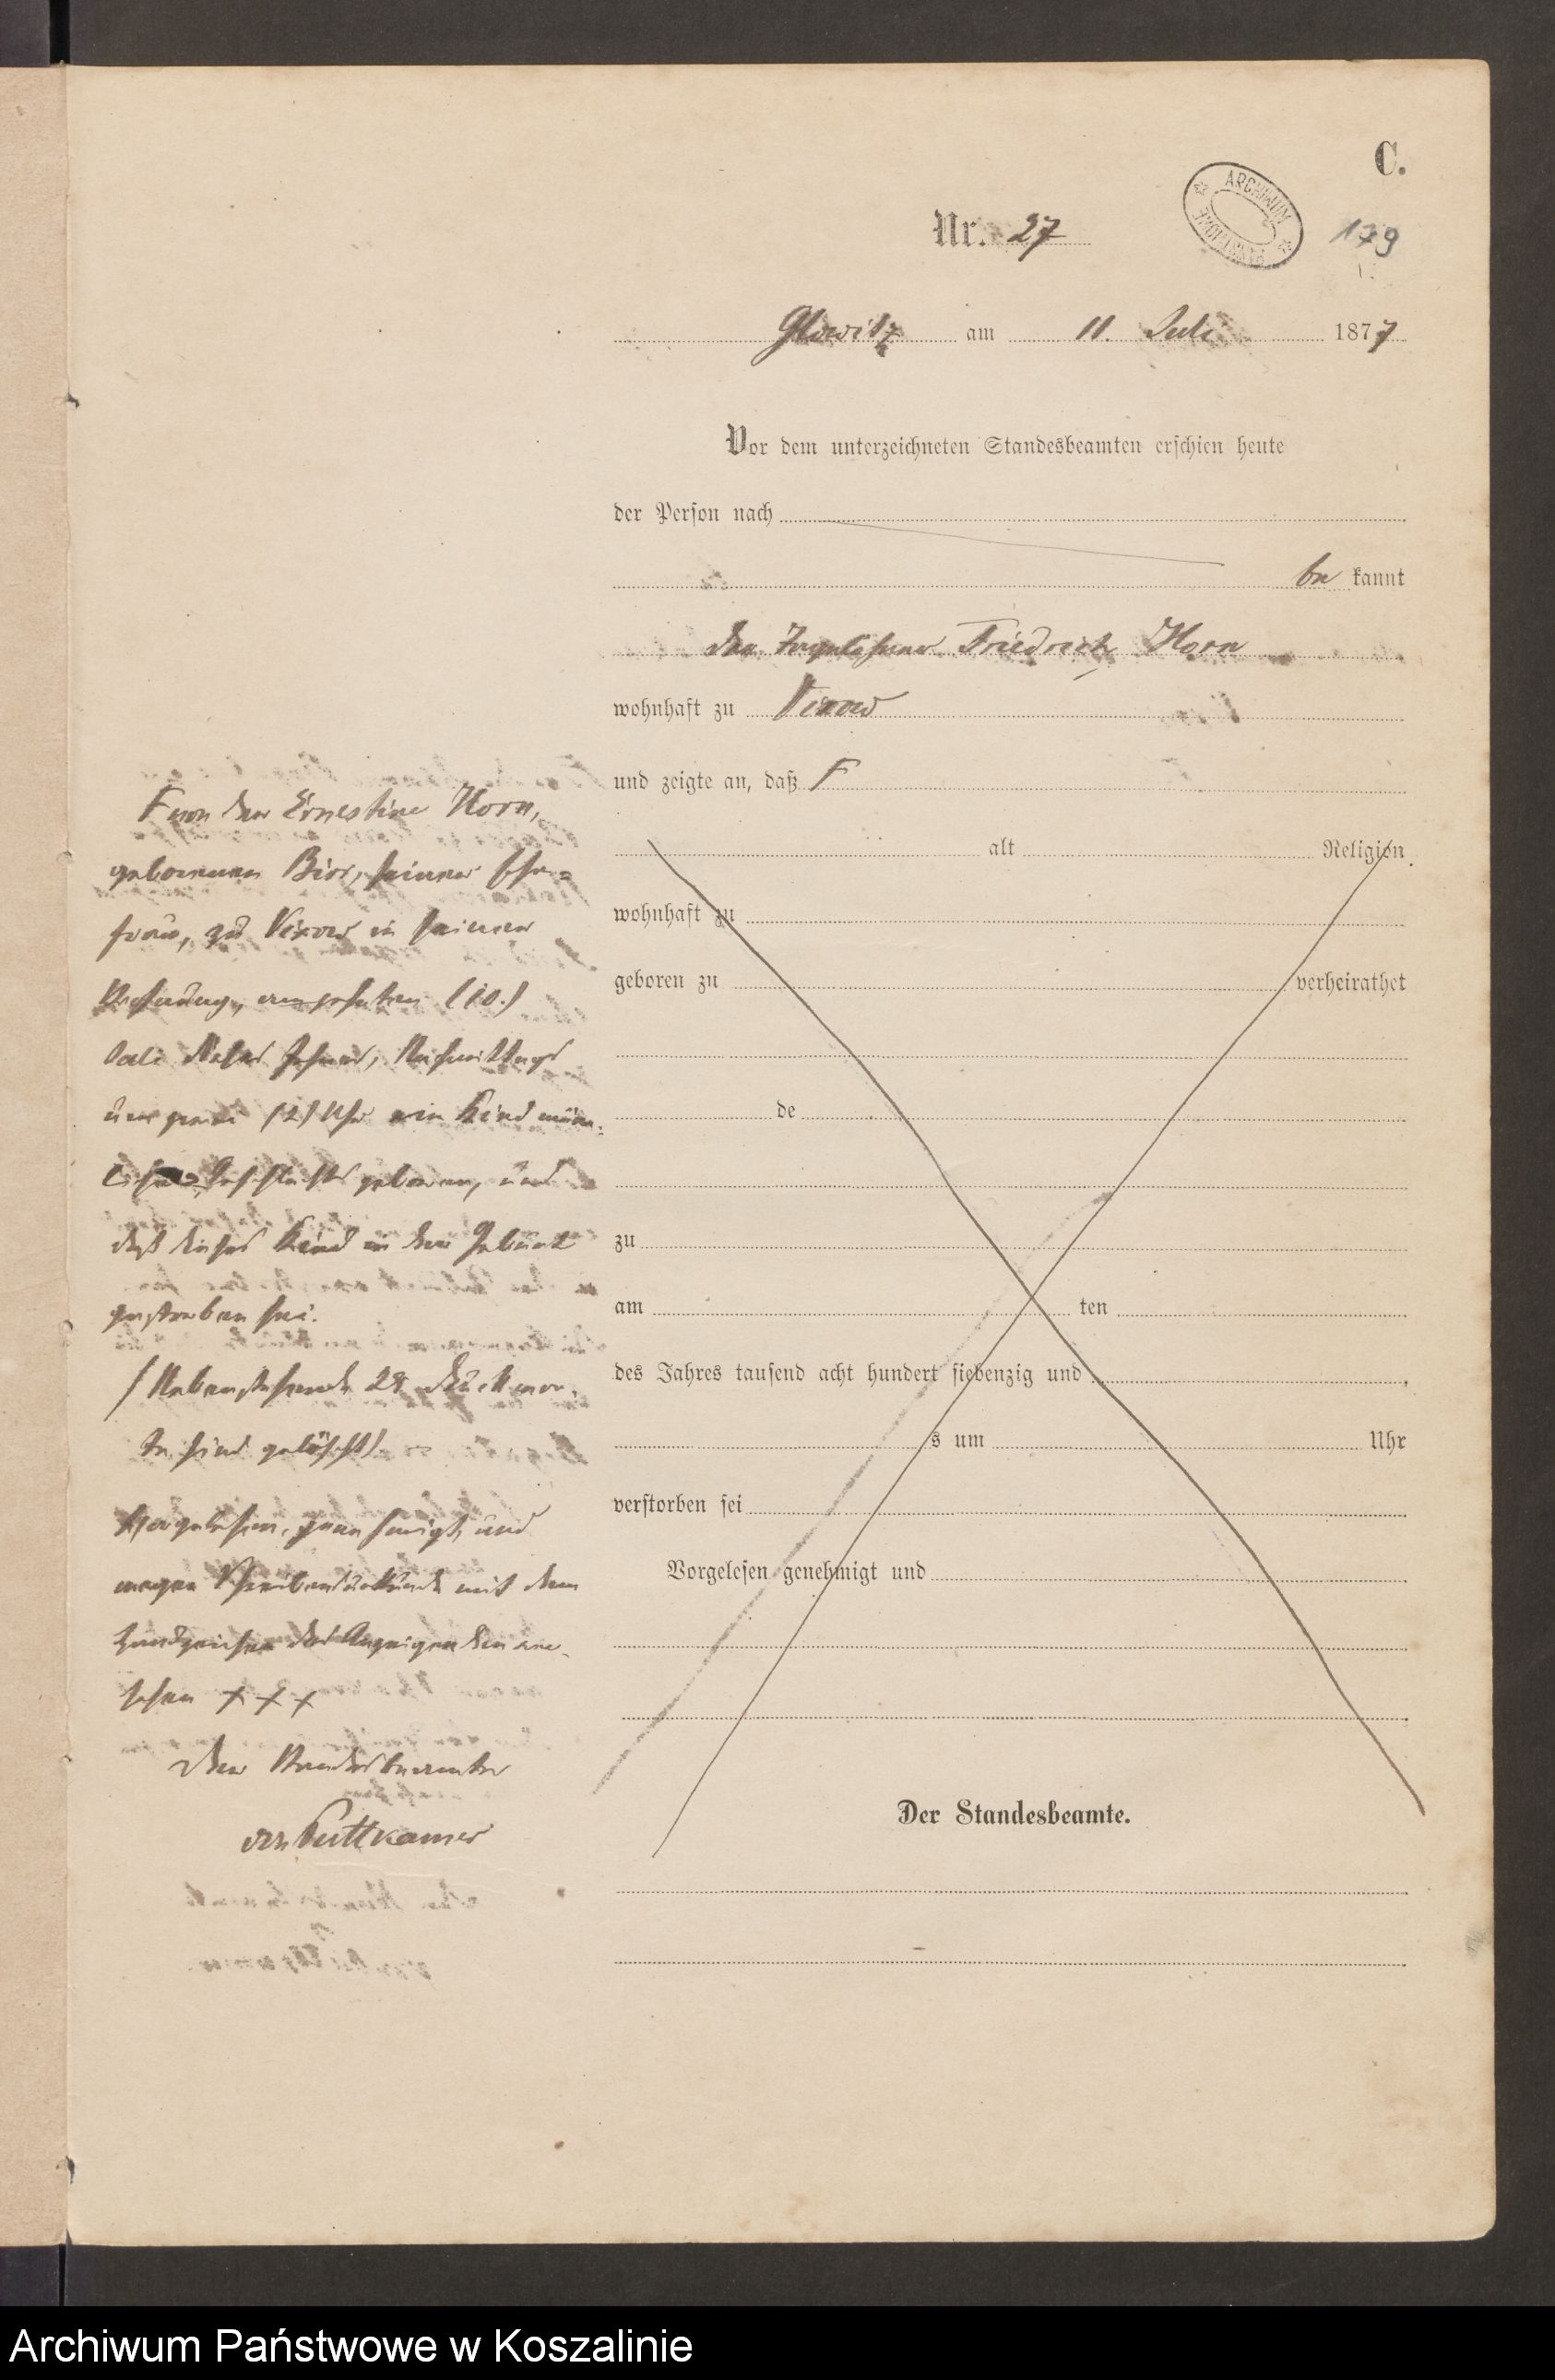 C.
ARCHIWUM PAŃSTWOWE
Nr. 27
179
Glowitz am 11. Juli 1877
Vor dem unterzeichneten Standesbeamten erschien heute
der Person nach
be kannt
der Tagelöhner Friedrich Horn
wohnhaft zu Vixow
und zeigte an, daß F
alt Religion
wohnhaft zu
geboren zu verheirathet
de
zu
am ten
des Jahres tausend acht hundert siebenzig und
s um Uhr
verstorben sei
Vorgelesen genehmigt und
Der Standesbeamte.
F von der Ernestine Horn,
geborenen Birr, seiner Ehe=
frau, zu Vixow in seiner
Behausung, am zehnten (10.)
Juli dieses Jahres, Nachmittags
um zwei (2) Uhr ein Kind männ-
lichen Geschlechts geboren, und
daß dieses Kind in der Geburt
gestorben sei.
(Nebenstehende 28 Druckwor-
te sind gelöscht)
Vorgelesen, genehmigt und
wegen Schreibensunkunde mit dem
Handzeichen des Anzeigenden ver-
sehen + + +
Der Standesbeamte
von Puttkamer
Archiwum Państwowe w Koszalinie